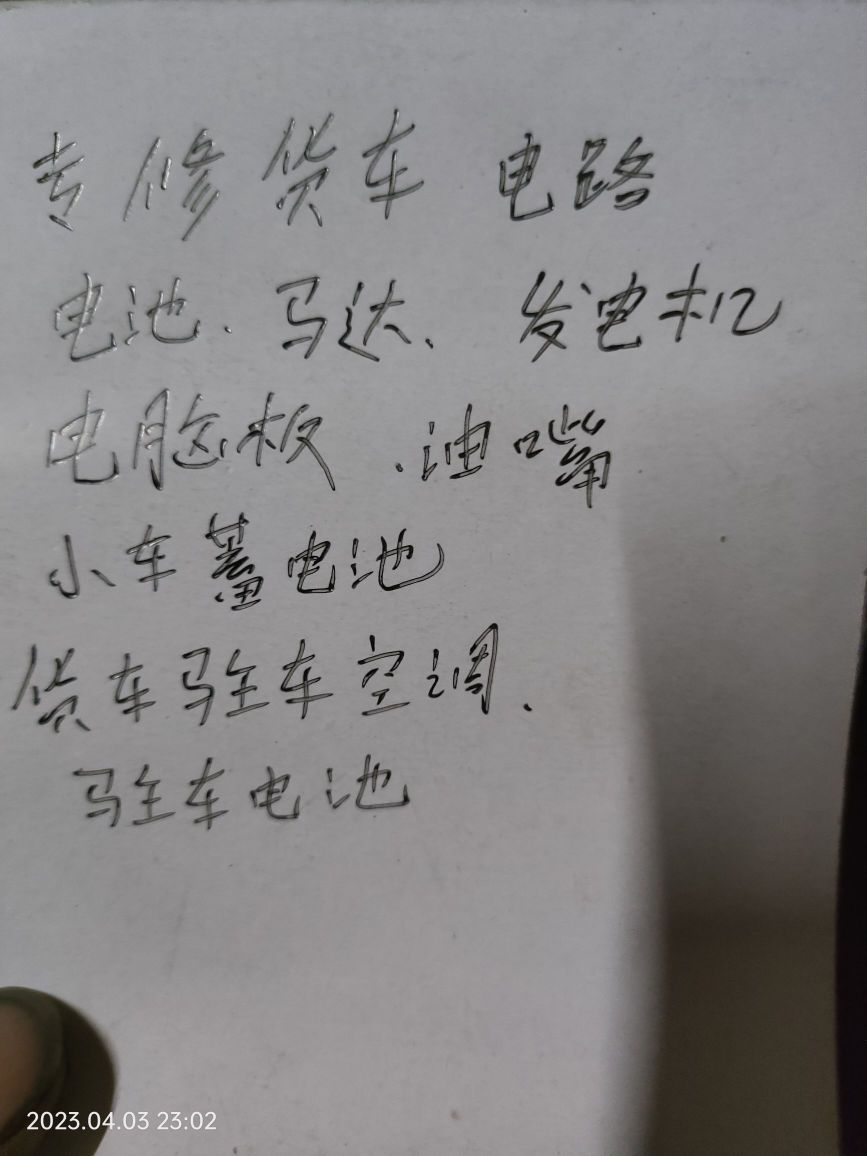 专修货车 电路
电池.马达、发电机
电脑板.油嘴
小车蓄电池
货车驻车空调.
驻车电池
2023.04.03 23:02